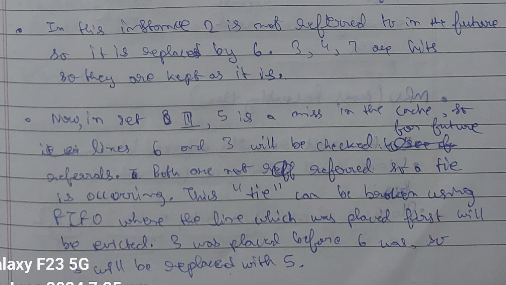 • In this instance 2 is not referred to in the future
so it is replaced by 6. 3, 4, 7 are hits
so they are kept as it is.
• Now, in set II, 5 is a miss in the cache, so
lines 6 and 3 will be checked for future
referrals. Both are not referred so a tie
is occurring. This "tie" can be broken using
FIFO where the line which was placed first will
be evicted. 3 was placed before 6 was, so
will be replaced with 5.
alaxy F23 5G